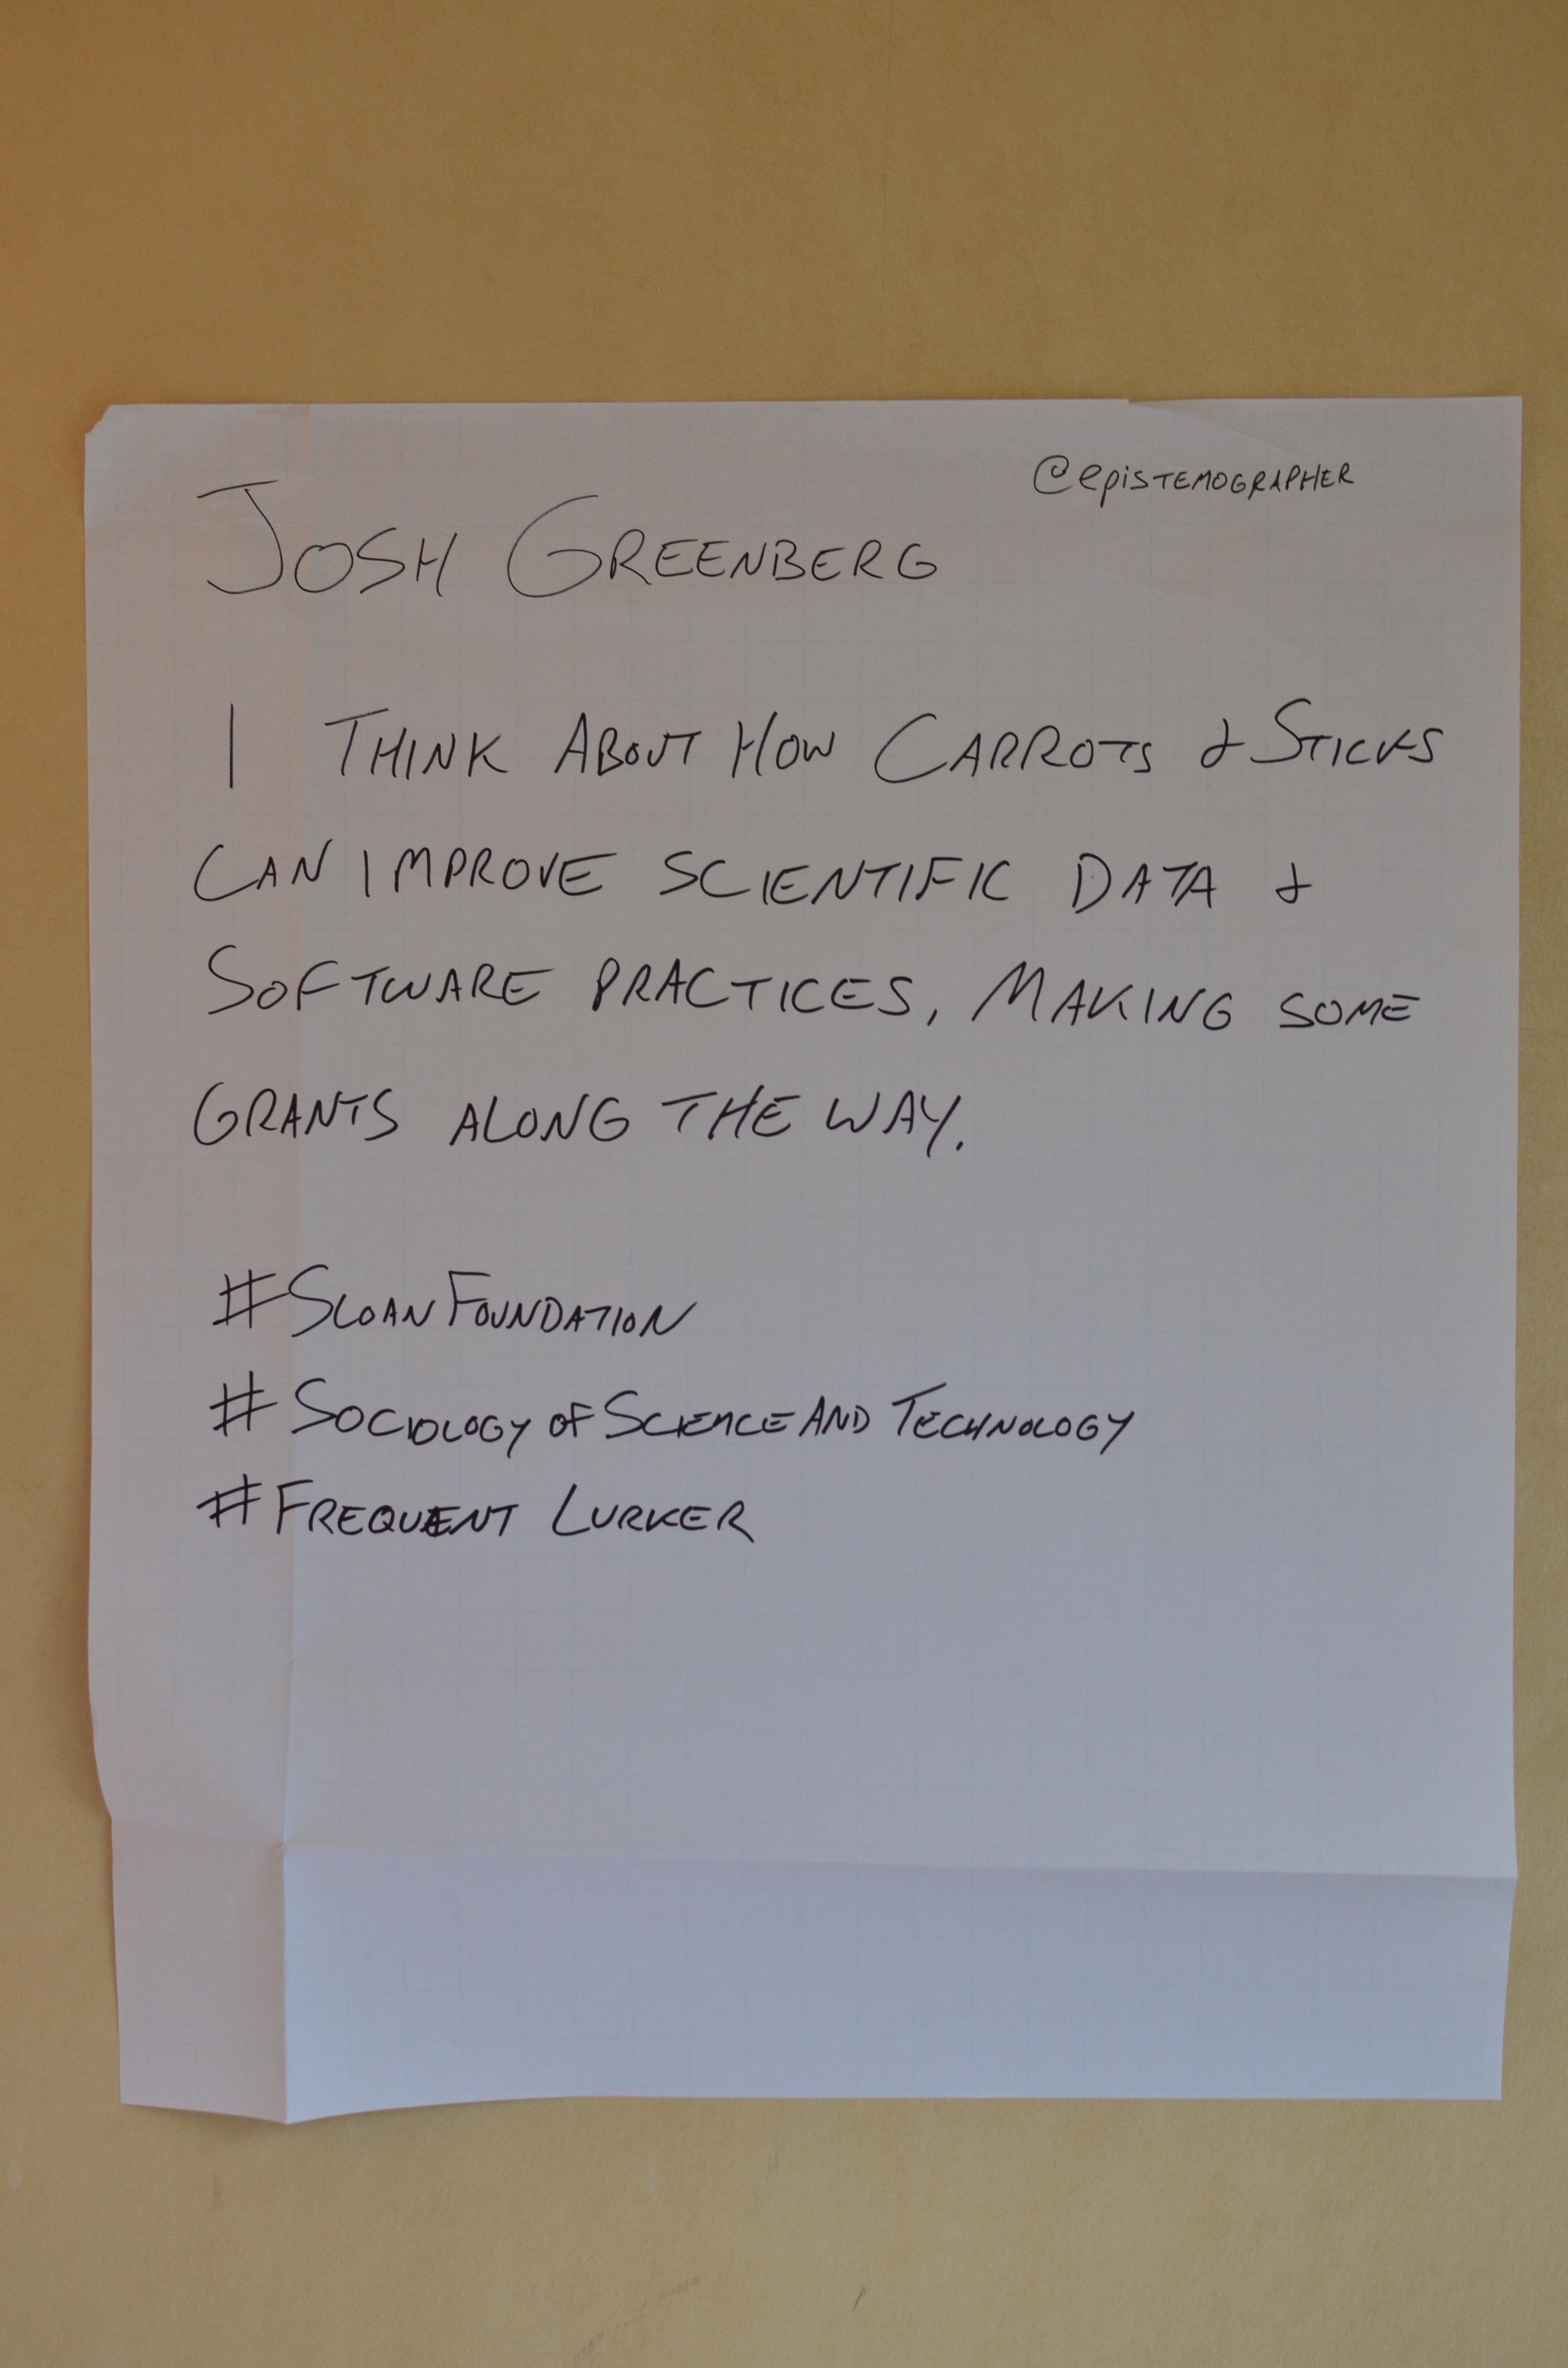 @epistemographer
Josh Greenberg
I Think About How Carrots & Sticks
Can improve scientific Data &
Software practices, Making some
grants along the way.
#SloanFoundation
#Sociology of Science And Technology
#Frequent Lurker